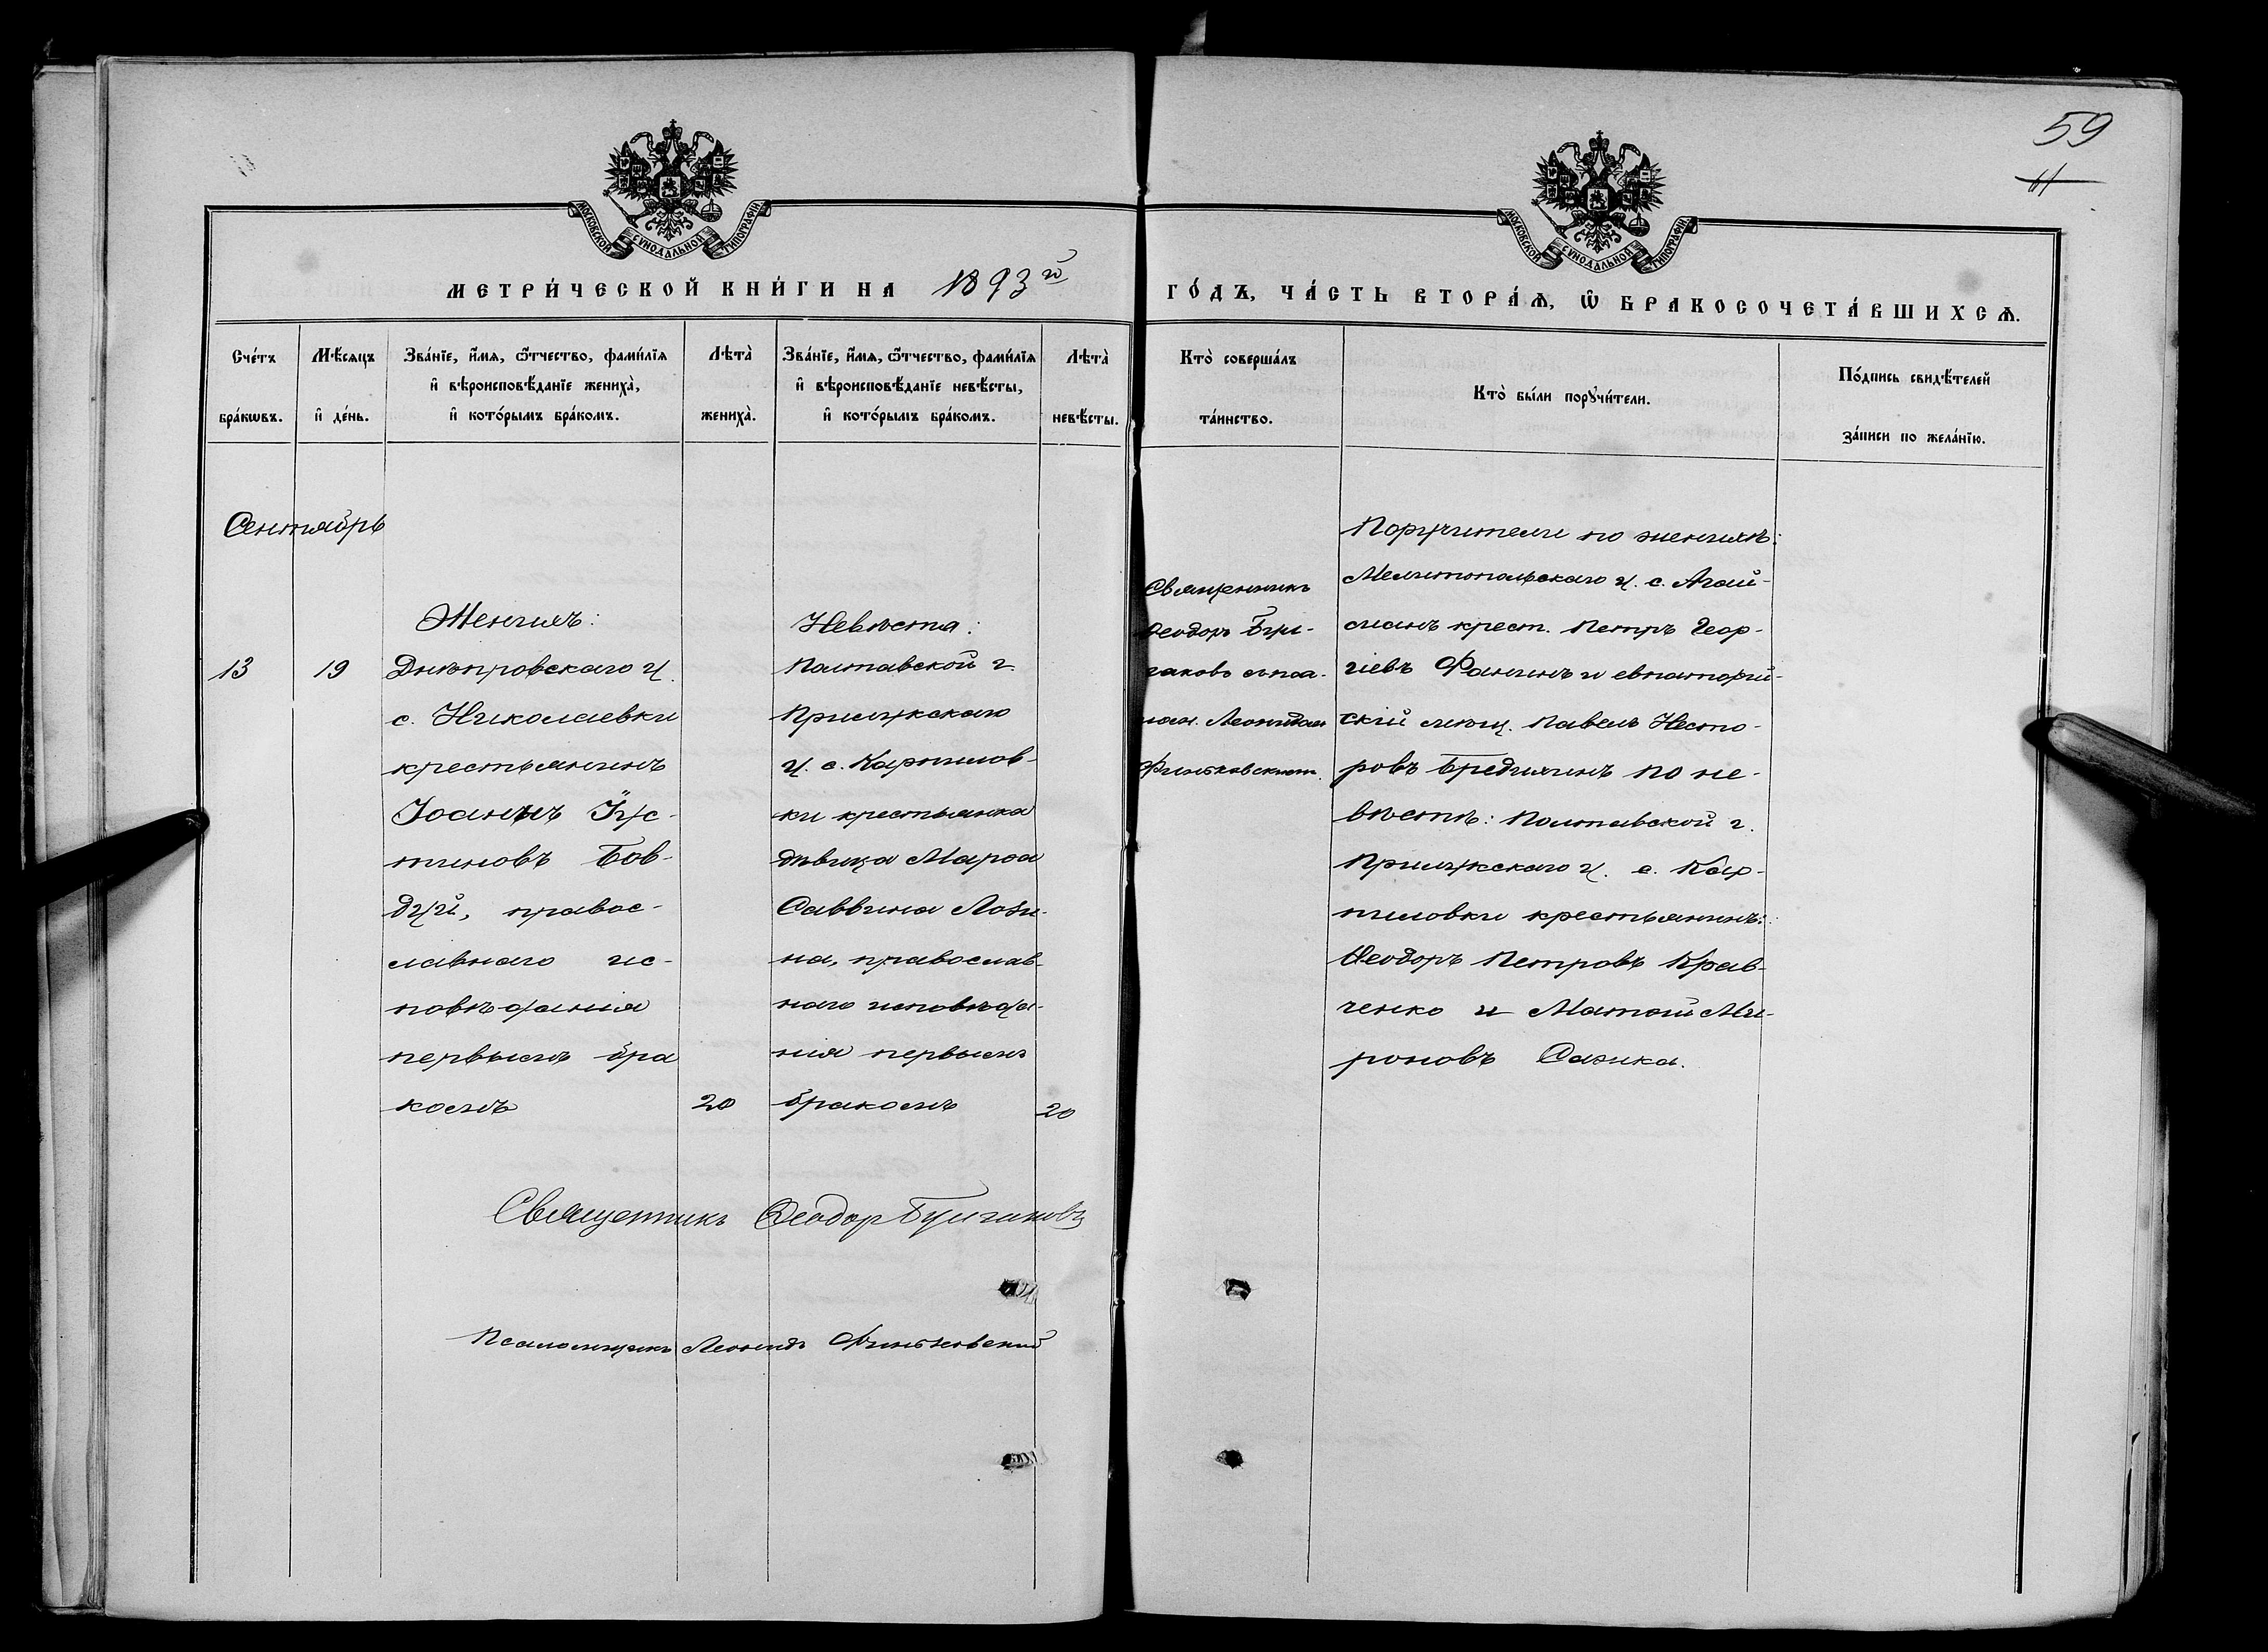 59
11
МОСКОВСКОЙ СУНОДАЛЬНОЙ ТИПОГРАФІИ
МОСКОВСКОЙ СУНОДАЛЬНОЙ ТИПОГРАФІИ
МЕТРИ́ЧЕСКОЙ КНИ́ГИ НА 1893 й
ГО́ДЪ, ЧА́СТЬ ВТОРА́Ѧ, Ѽ БРАКОСОЧЕТА́ВШИХСѦ.
Сче́тъ бра́кѡвъ.
Мѣ́сяцъ и҆ де́нь.
Зва́нїе, и҆́мѧ, ѻ҆́тчество, фами́лїѧ
и҆ вѣроисповѣ́данїе жениха̀,
и҆ кото́рымъ бра́комъ.
Лѣта̀ жениха̀.
Зва́нїе, и҆́мѧ, ѻ҆́тчество, фами́лїѧ
и҆ вѣроисповѣ́данїе невѣ́сты,
и҆ кото́рымъ бра́комъ.
Лѣта̀ невѣ́сты.
Кто̀ соверша́лъ
та́инство.
Кто̀ бы́ли порꙋчи́тели.
По́дпись свидѣ́телей
за́писи по жела́нїю.
Сентябрь
13
19
Женихъ:
Днѣпровскаго у.
с. Николаевки
крестьянинъ
Іоаннъ Іус-
тиновъ Бов-
дуй, правос-
лавнаго ис-
повѣданія
первымъ бра
комъ
20
Невѣста:
Полтавской г.
Прилукскаго
у. с. Карпилов-
ки крестьянка
дѣвица Марѳа
Саввина Лози-
на, православ-
наго исповѣда-
нія первымъ
бракомъ
20
Священникъ
Ѳеодоръ Бул-
гаковъ съ пса-
лом. Леонидом
Финьковским.
Поручители по женихѣ:
Мелитопольскаго у. с. Агай-
манъ крест. Петръ Геор-
гіевъ Фанинъ и евпаторій-
скій мѣщ. Павелъ Несто-
ровъ Бредихинъ по не-
вѣстѣ: Полтавской г.
Прилукскаго у. с. Кар-
пиловки крестьянинъ:
Ѳеодоръ Петровъ Крав-
ченко и Матѳій Ми-
роновъ Сазика.
Священникъ Ѳеодоръ Булгаковъ
Псаломщикъ Леонидъ Финьковский